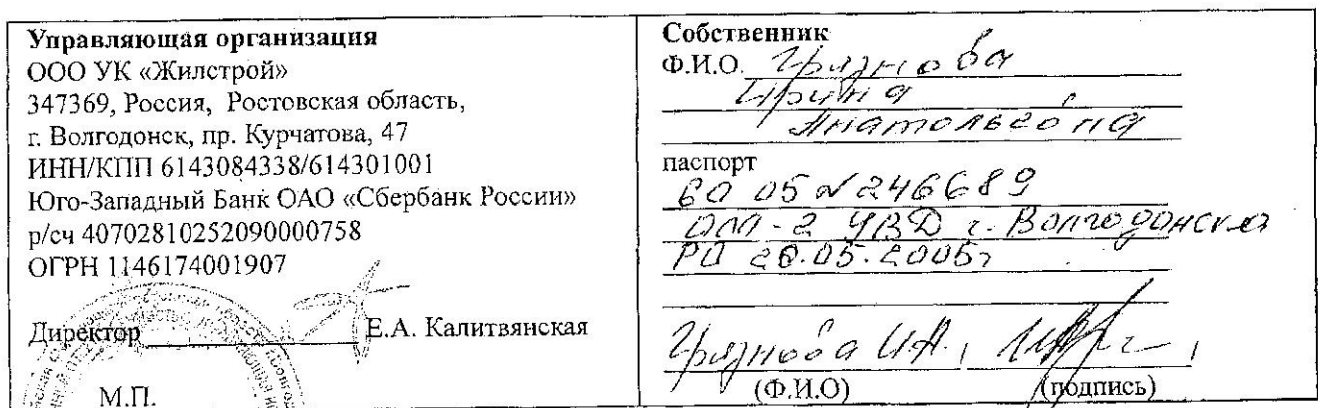 Управляющая организация
ООО УК «Жилстрой»
347369, Россия, Ростовская область,
г. Волгодонск, пр. Курчатова, 47
ИНН/КПП 6143084338/614301001
Юго-Западный Банк ОАО «Сбербанк России»
р/сч 40702810252090000758
ОГРН 1146174001907
Директор Е.А. Калитвянская
М.П.
Собственник
Ф.И.О. Грязнова
Ирина
Анатольевна
паспорт
60 05 № 246689
ОМ-2 УВД г. Волгодонска
РО 20.05.2005г
Грязнова И.А.,
(Ф.И.О) (подпись)